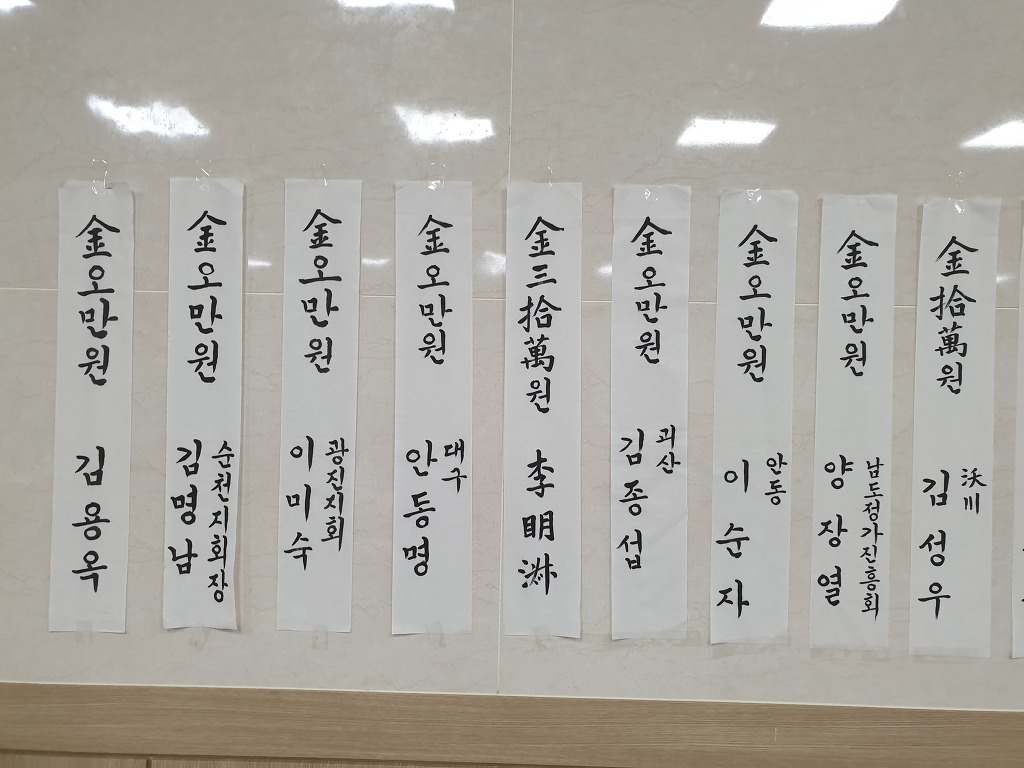 金오만원
김용옥
金오만원
순천지회장
김명남
金오만원
광진지회
이미숙
金오만원
대구
안동명
金三拾萬원
李明
金오만원
괴산
김종섭
金오만원
안동
이순자
金오만원
남도정가진흥회
양장열
金拾萬원
沃川
김성우